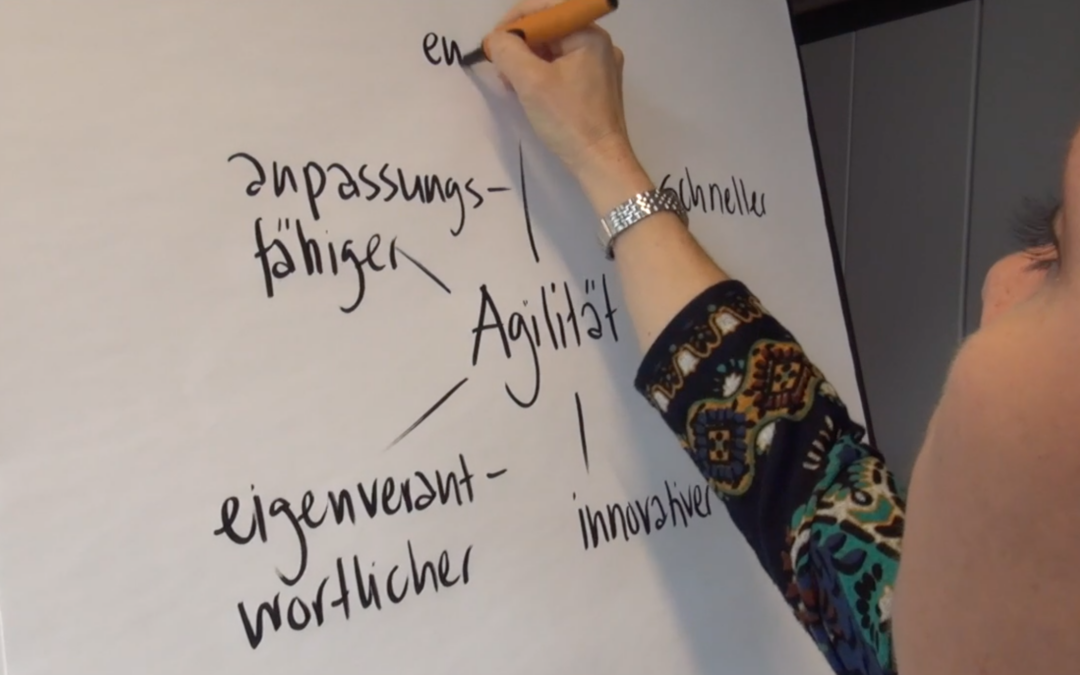 en
anpassungs-
fähiger
schneller
Agilität
eigenverant-
wortlicher
innovativer